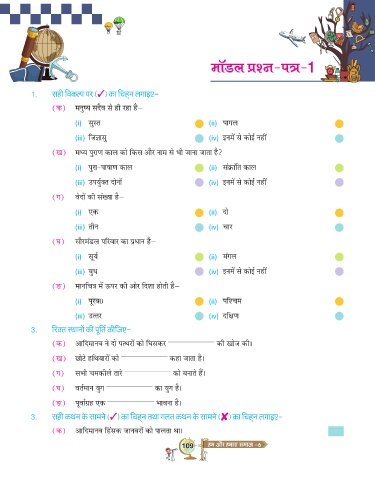 मॉडल प्रश्न-पत्र-1
1. सही विकल्प पर (✓) का चिह्न लगाइए-
(क) मनुष्य सदैव से ही रहा है-
(i) सुस्त (ii) पागल
(iii) जिज्ञासु (iv) इनमें से कोई नहीं
(ख) मध्य पुराण काल को किस और नाम से भी जाना जाता है?
(i) पुरा-पाषाण काल (ii) संक्रांति काल
(iii) उपर्युक्त दोनों (iv) इनमें से कोई नहीं
(ग) वेदों की संख्या है-
(i) एक (ii) दो
(iii) तीन (iv) चार
(घ) सौरमंडल परिवार का प्रधान है-
(i) सूर्य (ii) मंगल
(iii) बुध (iv) इनमें से कोई नहीं
(ङ) मानचित्र में ऊपर की ओर दिशा होती है-
(i) पूरब (ii) पश्चिम
(iii) उत्तर (iv) दक्षिण
3. रिक्त स्थानों की पूर्ति कीजिए-
(क) आदिमानव ने दो पत्थरों को घिसकर ________ की खोज की।
(ख) छोटे हथियारों को ________ कहा जाता है।
(ग) सभी चमकीले तारे ________ को बनाते हैं।
(घ) वर्तमान युग ________ का युग है।
(ङ) पूर्वाग्रह एक ________ भावना है।
3. सही कथन के सामने (✓) का चिह्न तथा गलत कथन के सामने (✗) का चिह्न लगाइए-
(क) आदिमानव हिंसक जानवरों को पालता था।
109 हम और हमारा समाज -6